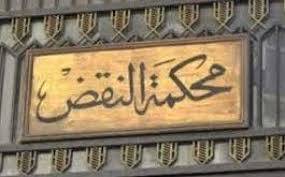 محكمة النقض